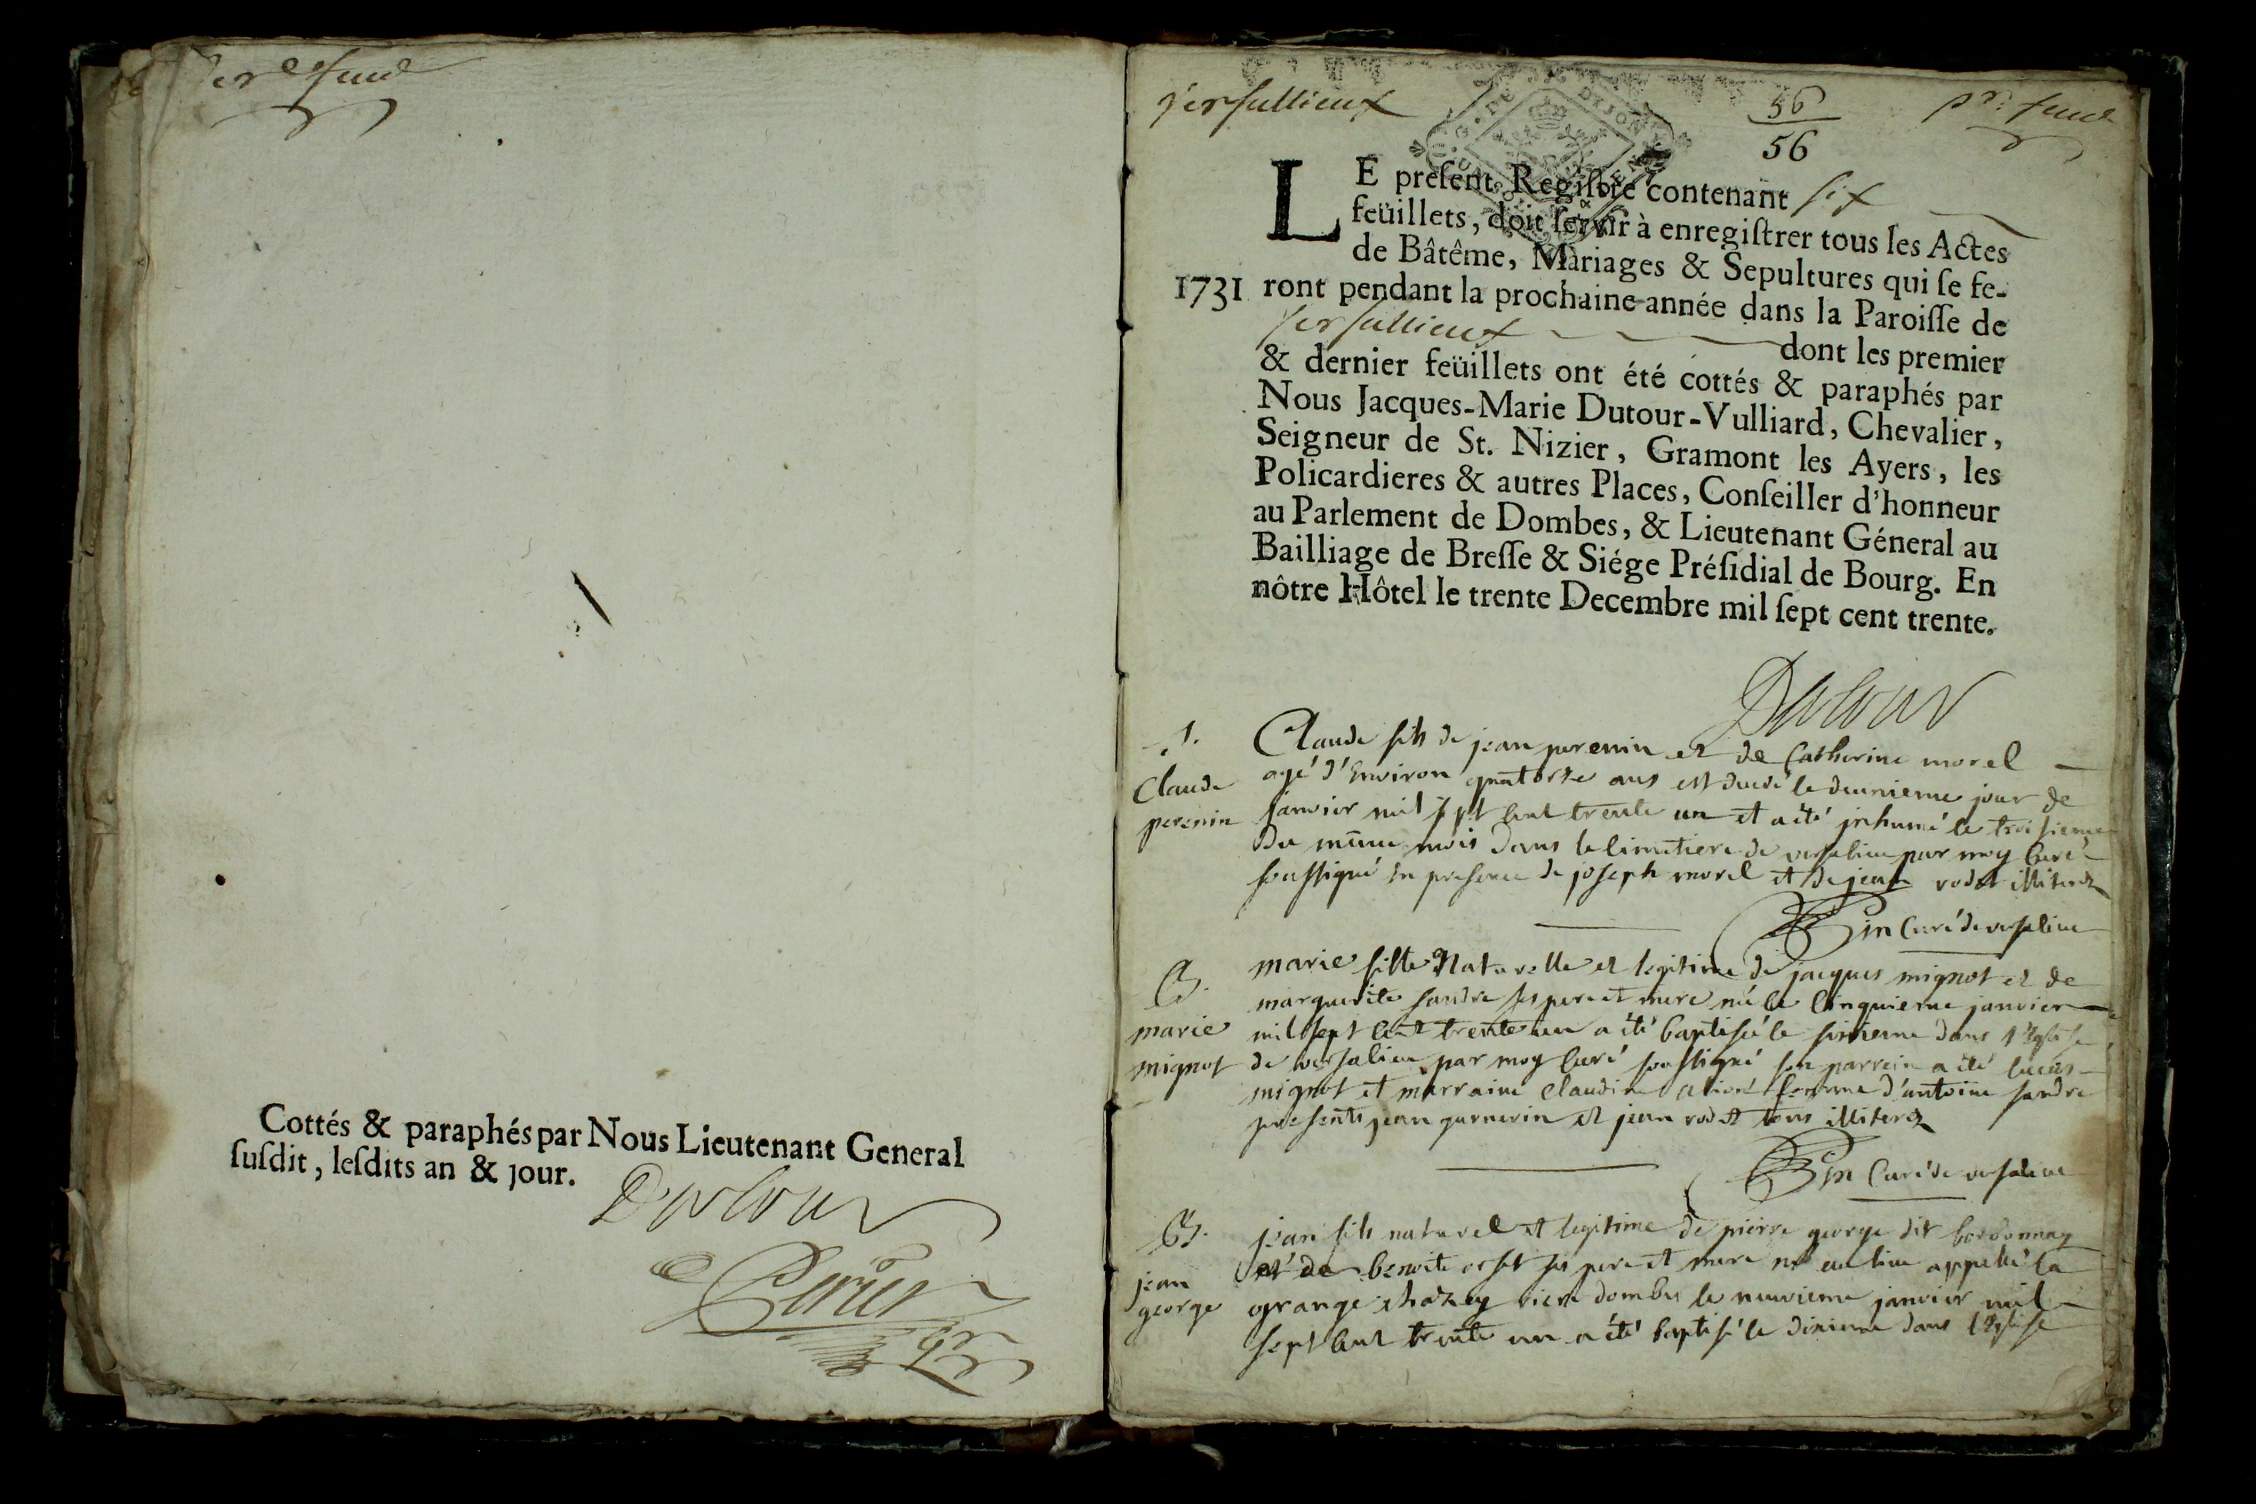 Cottés & paraphés par Nous Lieutenant General
susdit, lesdits an & jour.
Dutour
Versallieux
56
56
LE present Registre contenant six
feüillets, doit servir à enregistrer tous les Actes
de Bâtême, Mariages & Sepultures qui se fe-
1731 ront pendant la prochaine année dans la Paroisse de
Versallieux dont les premier
& dernier feüillets ont été cottés & paraphés par
Nous Jacques-Marie Dutour-Vulliard, Chevalier,
Seigneur de St. Nizier, Gramont les Ayers, les
Policardieres & autres Places, Conseiller d'honneur
au Parlement de Dombes, & Lieutenant Géneral au
Bailliage de Bresse & Siége Présidial de Bourg. En
nôtre Hôtel le trente Decembre mil sept cent trente.
Dutour
Claude
perenin
Claude fils de jean perenin et de Catherine morel
agé d'Environ quatorze ans est decedé le deunieme jour de
janvier mil sept cent trente un et a été jnhumé le troisieme
du même mois dans le Cimetiere de versalieu par moy Curé
soussigné En presence de joseph morel et de jean rodet illiterez
Curé de versalieu
B.
marie
mignot
marie fille Naturelle et legitime de jacques mignot et de
marguerite sandre ses pere et mere née le Cinquieme janvier
mil sept cent trente un a été baptisée le sixieme dans l'Eglise
de versalieu par moy Curé soussigné son parrein a été lucas
mignot et marraine Claudine femme d'antoine sandre
presents jean gurnerin et jean rodet tous illiterez
Curé de versalieu
B.
jean
george
jean fils naturel et legitime de pierre george dit bordonnay
et de benoite ses pere et mere né au lieu appellé la
grange chazey riere dombes le neuvieme janvier mil
sept cent trente un a été baptisé le dixieme dans l'Eglise